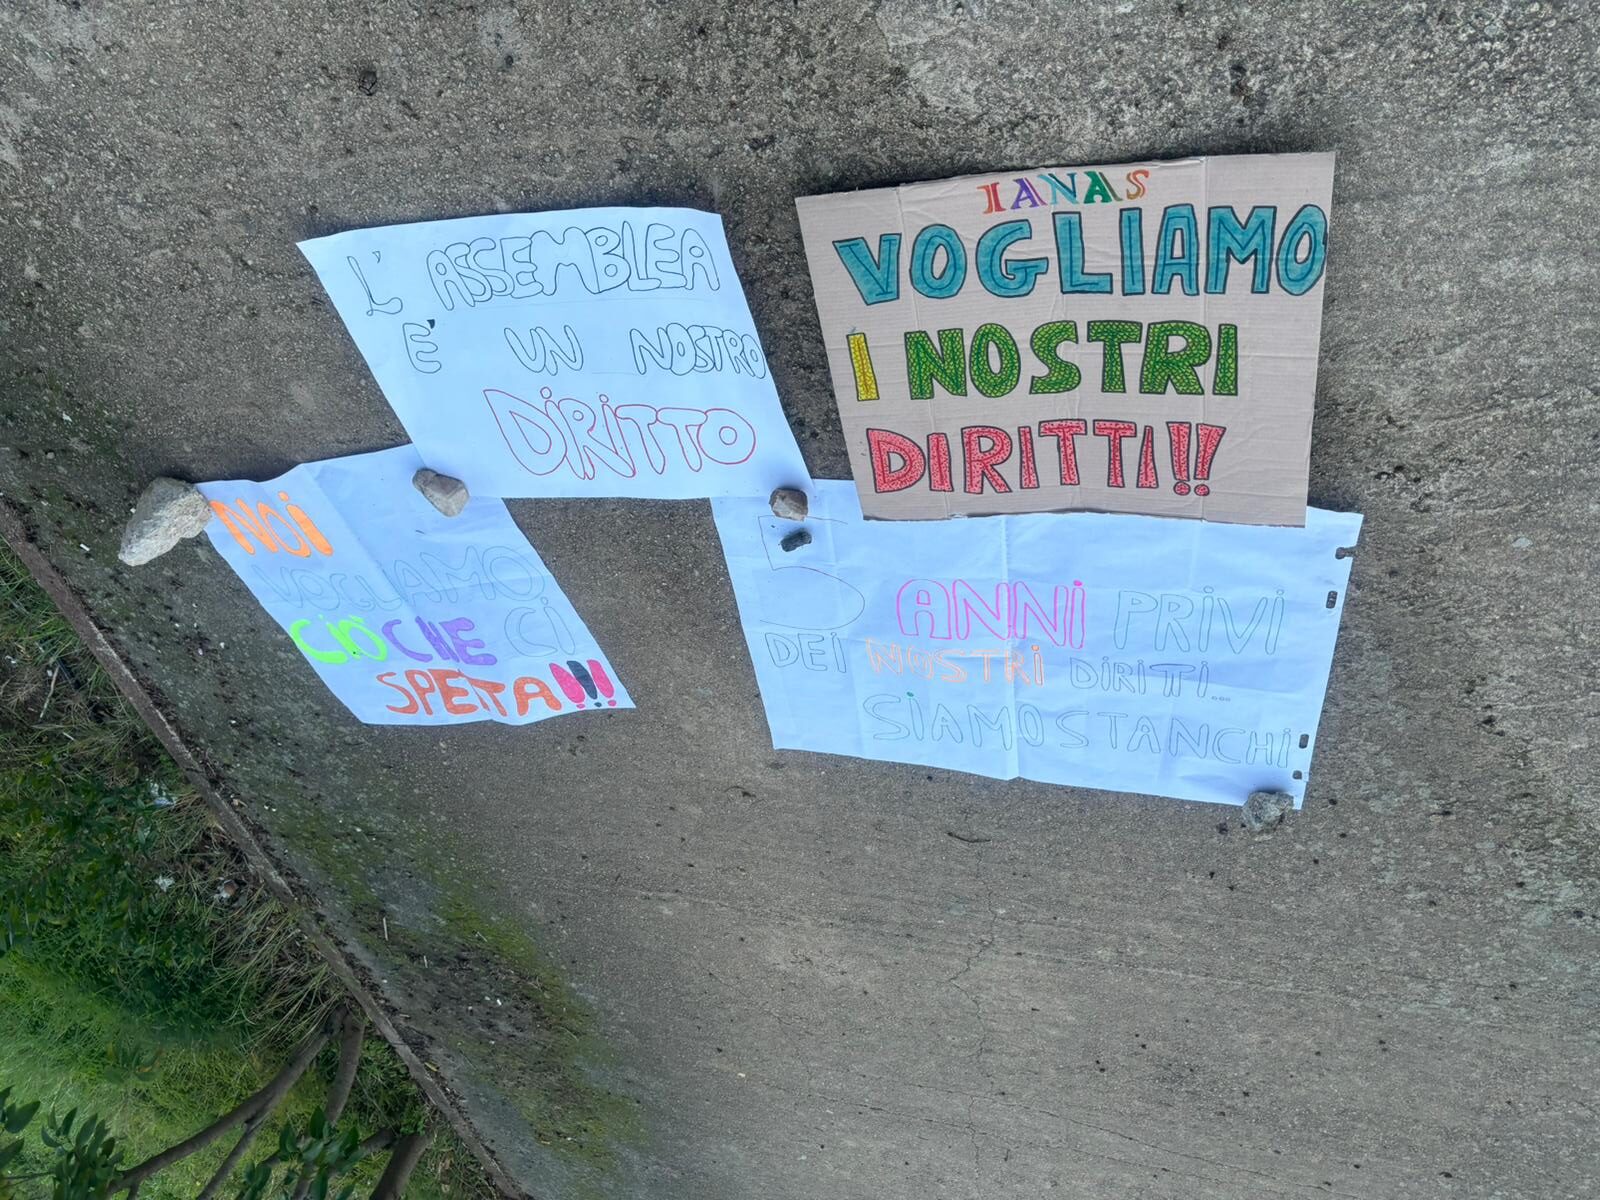 L'ASSEMBLEA
E' UN NOSTRO
DIRITTO
IANAS
VOGLIAMO
I NOSTRI
DIRITTI!!
NOI
VOGLIAMO
CIÒ CHE CI
SPETTA!!!
5 ANNI PRIVI
DEI NOSTRI DIRITTI...
SIAMO STANCHI